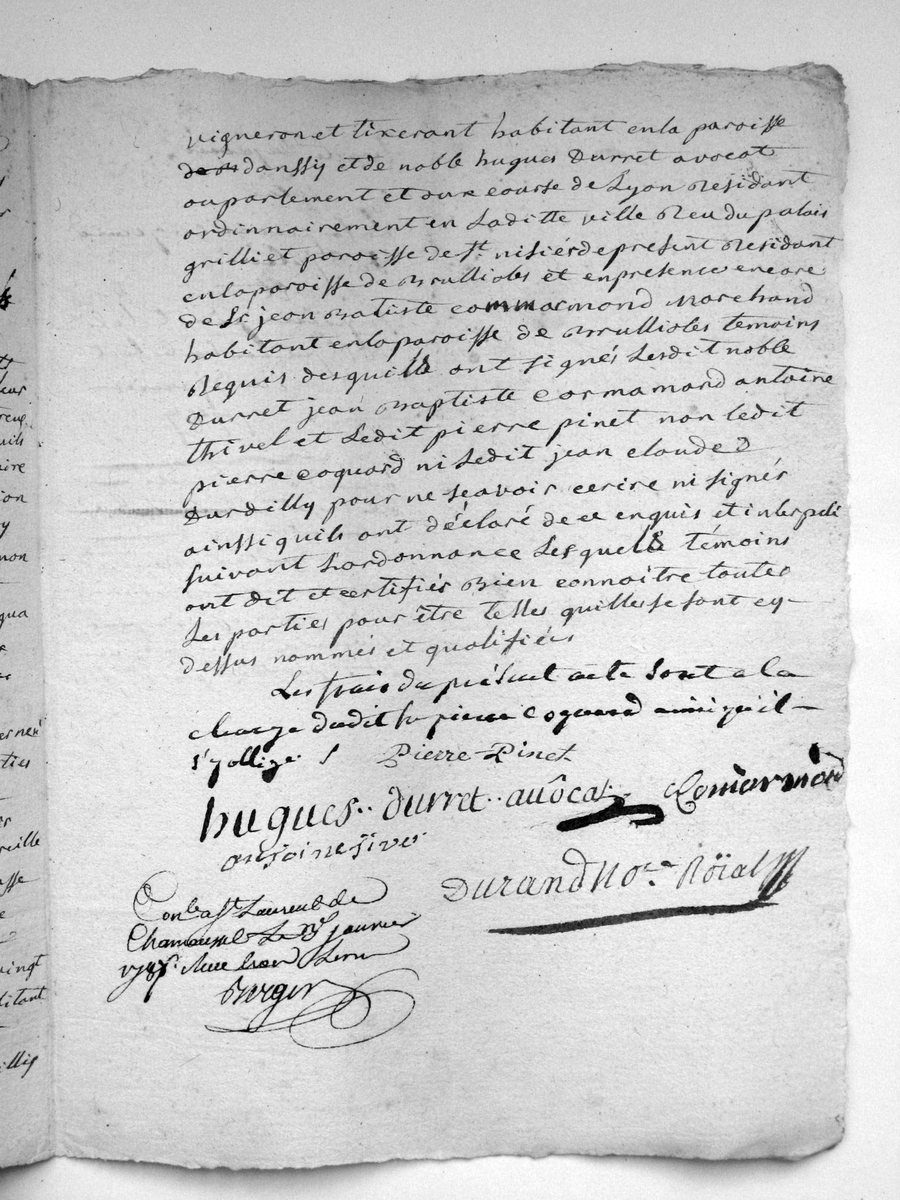 vigneron et tixerant habitant en la paroisse
danssy et de noble hugues Durret avocat
au parlement et aux course de Lyon Residant
ordinnairement en Laditte ville Reu du palais
grilli et paroisse de st. nisiés de present Residant
en la paroisse de Brullioles et en presence encore
de Sr jean Batiste commarmond Marchand
habitant en la paroisse de Brullioles temoins
Requis desquells ont signés Lesdit noble
Durret jean Baptiste Cormamond antoine
thivel et Ledit pierre pinet non ledit
pierre coquard ni Ledit jean claude D
Durdilly pour ne scavoir ecrire ni signés
ainssi quils ont déclaré de ce enquis et interpelé
suivant Lordonnance Lesquells témoins
ont dit et certifiés Bien connoitre toutes
Les parties pour être telles quilles se sont cy-
dessus nommés et qualifiées
Les frais du présent acte sont a la
charge dudit Sr pierre Coquard ainsi quil
s'y ollige
Pierre Pinet
hugues durret avôcat
Comarmond
antoine tivel
Durand No.re Röial
Conle a St Laurent de
Chamousset Le janvier
Berger